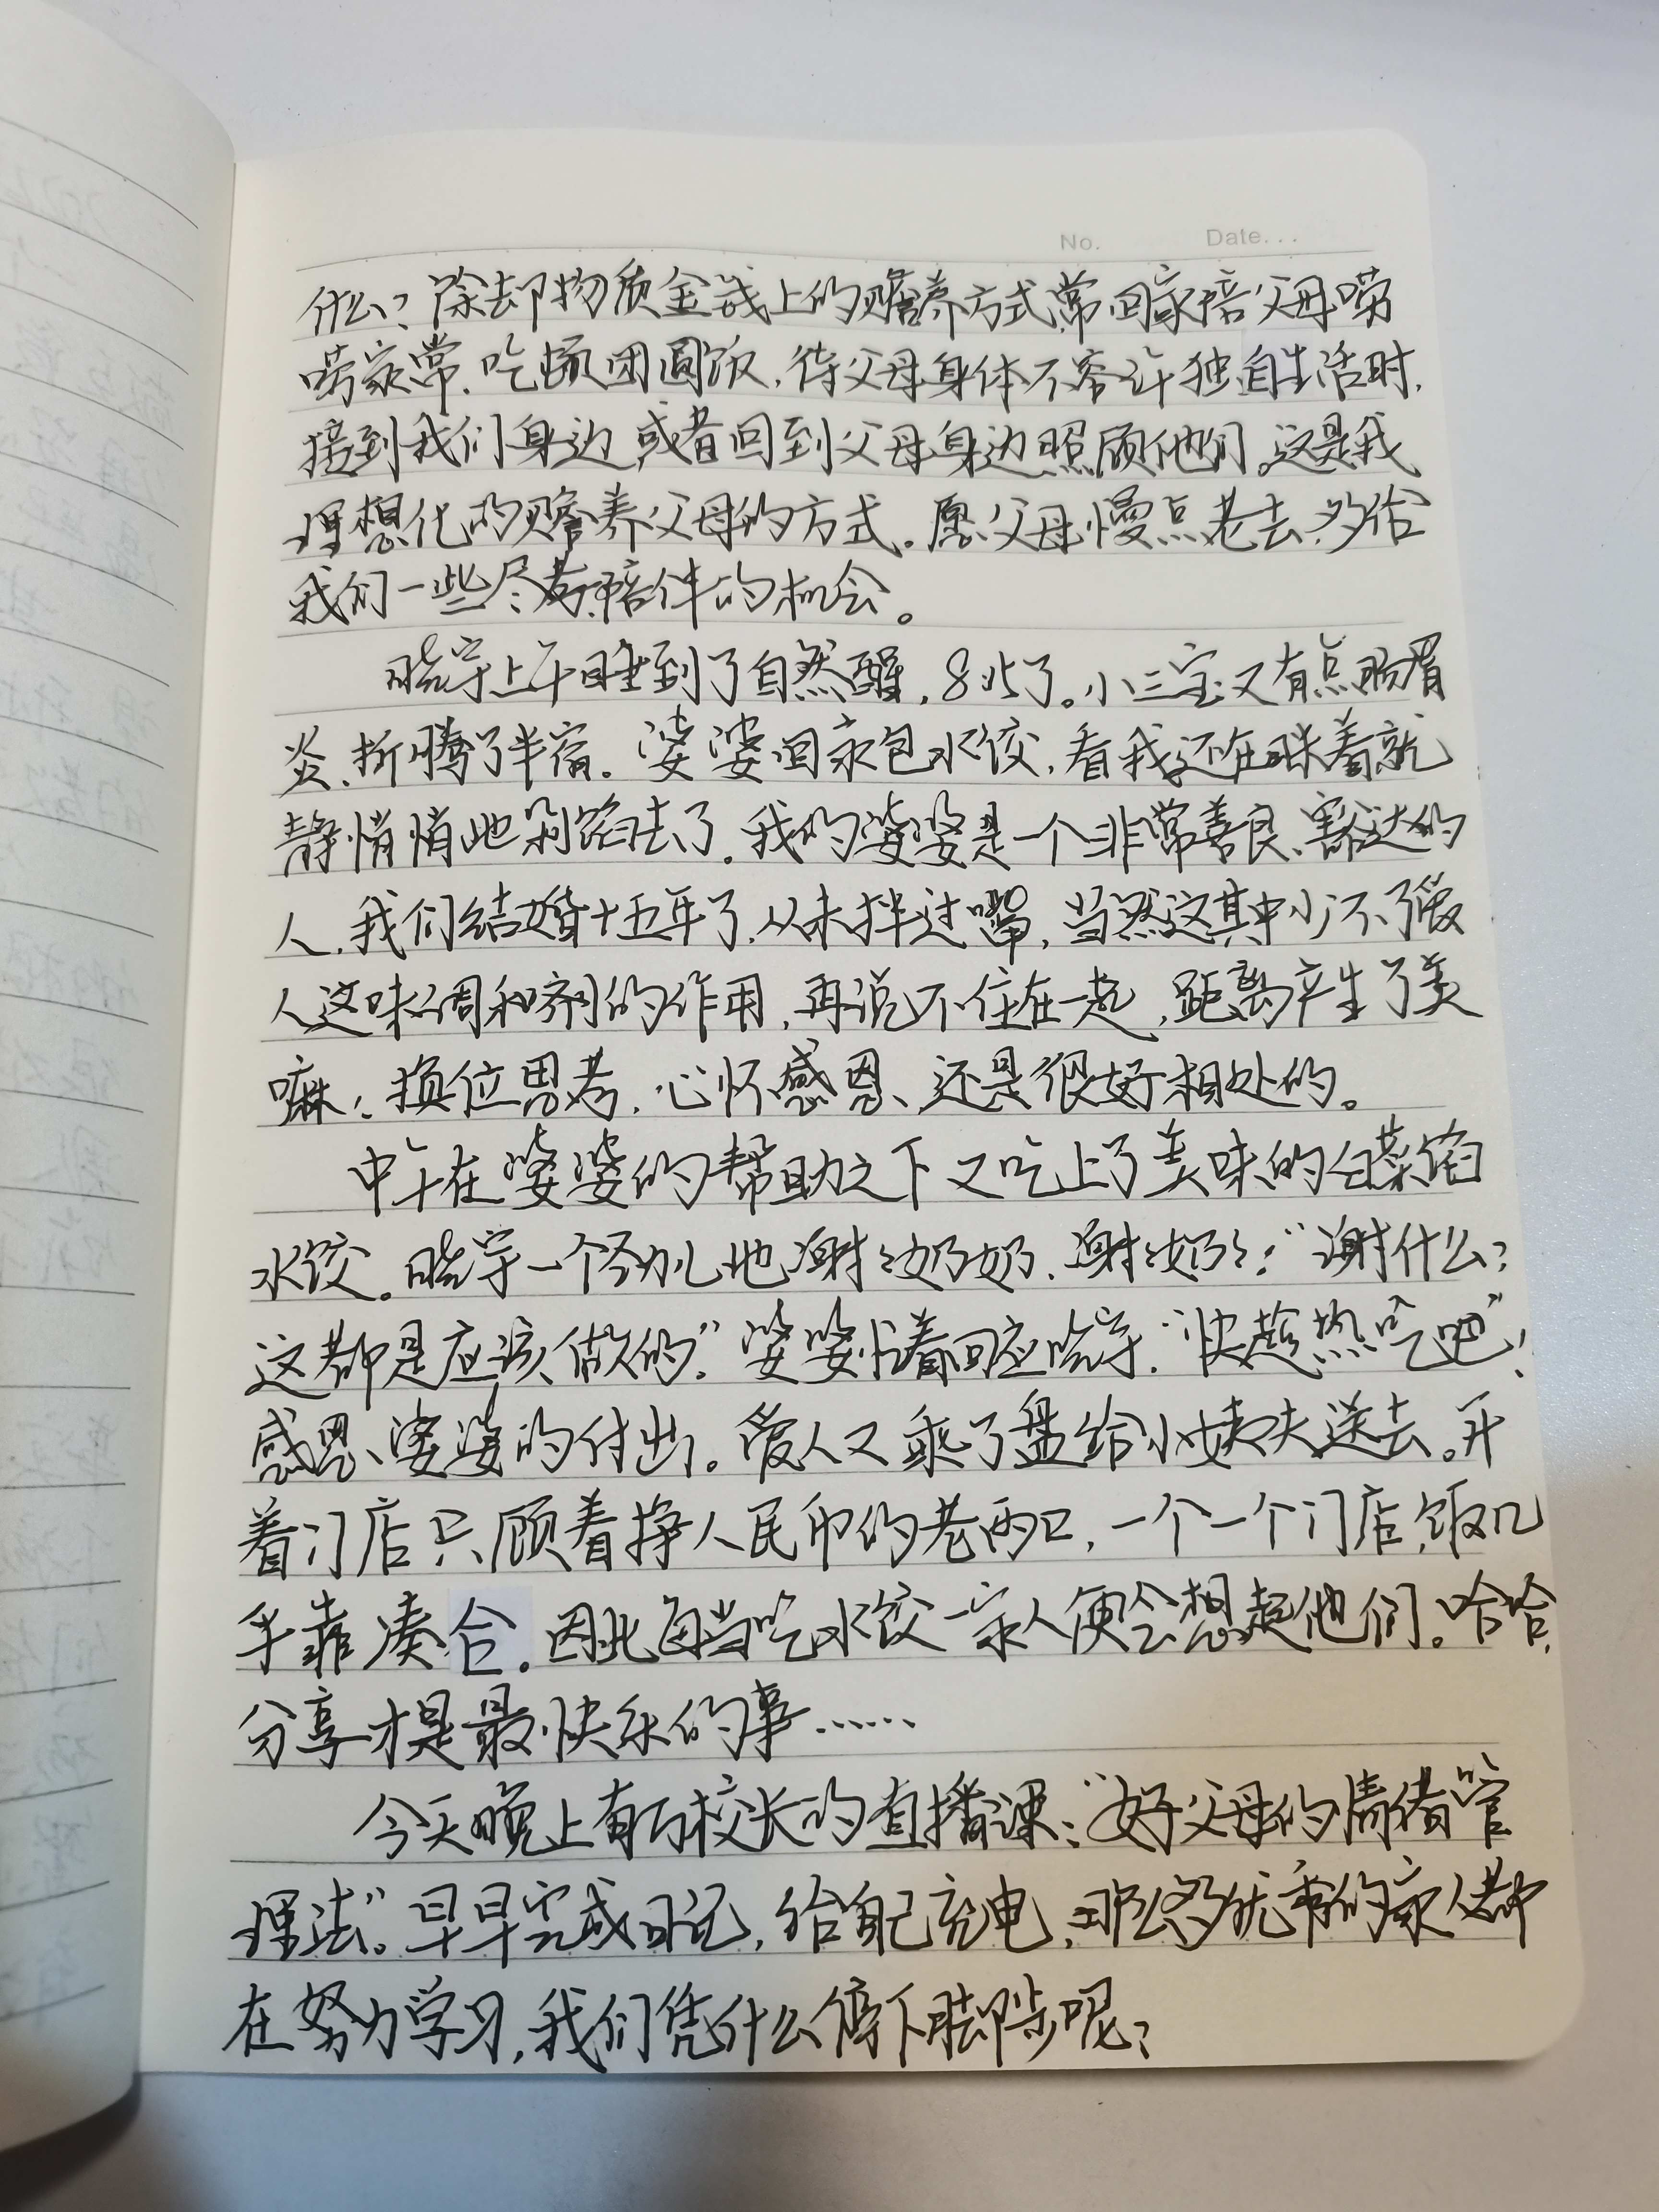 No. Date...
什么？除却物质金钱上的赡养方式，常回家陪父母唠
唠家常，吃顿团圆饭，待父母身体不容许独自生活时，
接到我们身边，或者回到父母身边照顾他们。这是我
理想化的赡养父母的方式。愿父母慢点老去，多给
我们一些尽孝、陪伴的机会。
晓宇上午睡到了自然醒，8点了。小三宝又有点肠胃
炎，折腾了半宿。婆婆回家包水饺，看我还在眯着就
静悄悄地剁馅去了。我的婆婆是一个非常善良、豁达的
人，我们结婚十五年了，从未拌过嘴，当然这其中少不了爱
人这味调和剂的作用，再说不住在一起，距离产生了美
嘛！换位思考，心怀感恩、还是很好相处的。
中午在婆婆的帮助之下又吃上了美味的白菜馅
水饺。晓宇一个劲儿地谢谢奶奶，谢谢奶奶！“谢什么？
这都是应该做的”。婆婆忙着回应晓宇，“快趁热吃吧”！
感恩、婆婆的付出。爱人又乘了盘给小姨夫送去。开
着门店只顾着挣人民币的老两口，一个一个门店，饭几
乎靠凑合。因此每当吃水饺一家人便会想起他们。哈哈，
分享才是最快乐的事……
今天晚上有万校长的直播课：“好父母的情绪管
理法”。早早完成日记，给自己充电，那么多优秀的家人都
在努力学习，我们凭什么停下脚步呢？